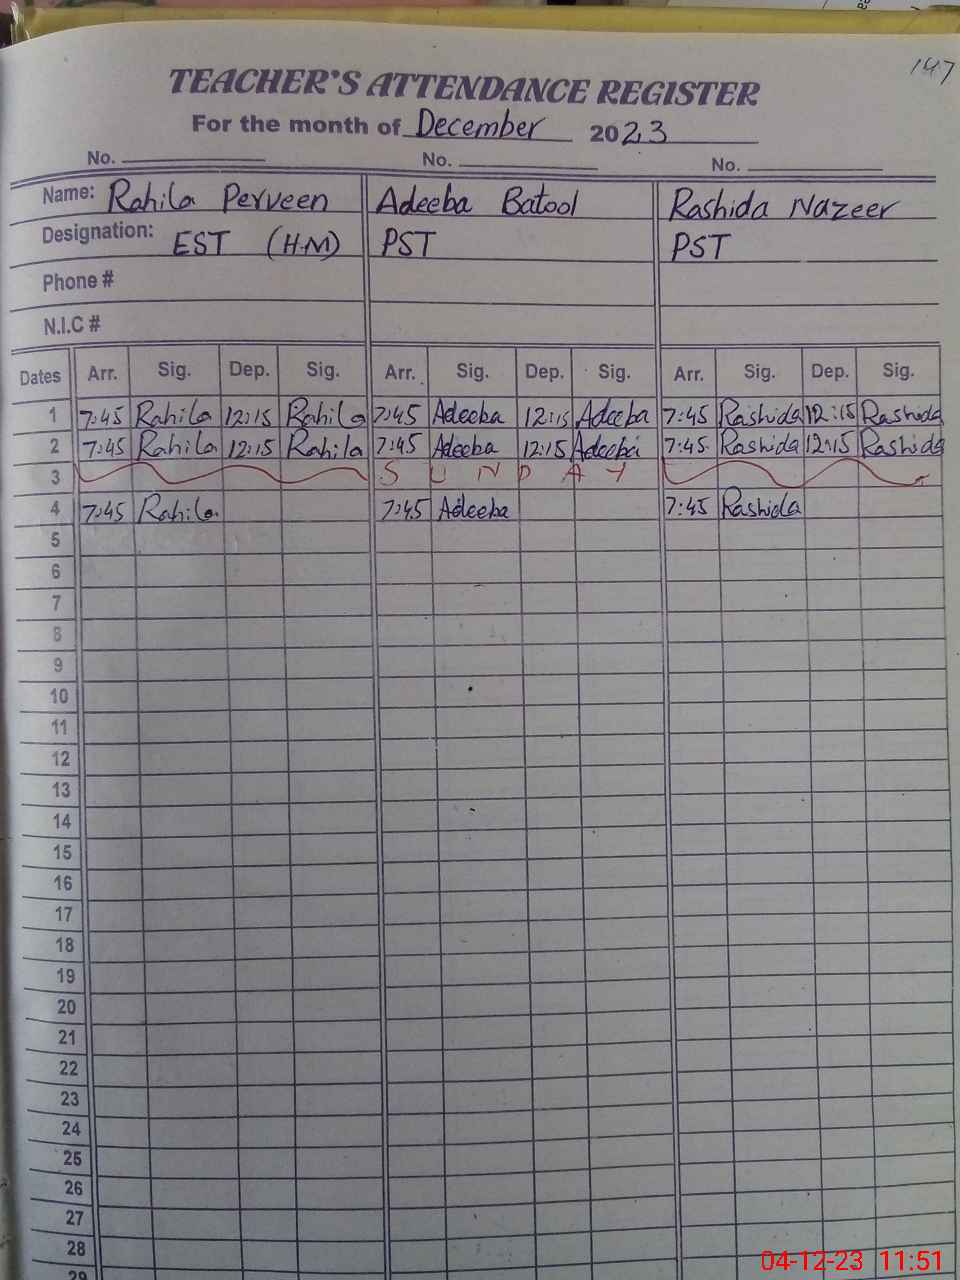 147
TEACHER'S ATTENDANCE REGISTER
For the month of December 2023
No. No. No.
Name: Rahila Perveen Adeeba Batool Rashida Nazeer
Designation: EST (H.M) PST PST
Phone #
N.I.C #
Dates Arr. Sig. Dep. Sig. Arr. Sig. Dep. Sig. Arr. Sig. Dep. Sig.
1 7:45 Rahila 12:15 Rahila 7:45 Adeeba 12:15 Adeeba 7:45 Rashida 12:15 Rashida
2 7:45 Rahila 12:15 Rahila 7:45 Adeeba 12:15 Adeeba 7:45 Rashida 12:15 Rashida
3 S U N D A Y
4 7:45 Rahila 7:45 Adeeba 7:45 Rashida
5
6
7
8
9
10
11
12
13
14
15
16
17
18
19
20
21
22
23
24
25
26
27
28
29
04-12-23 11:51